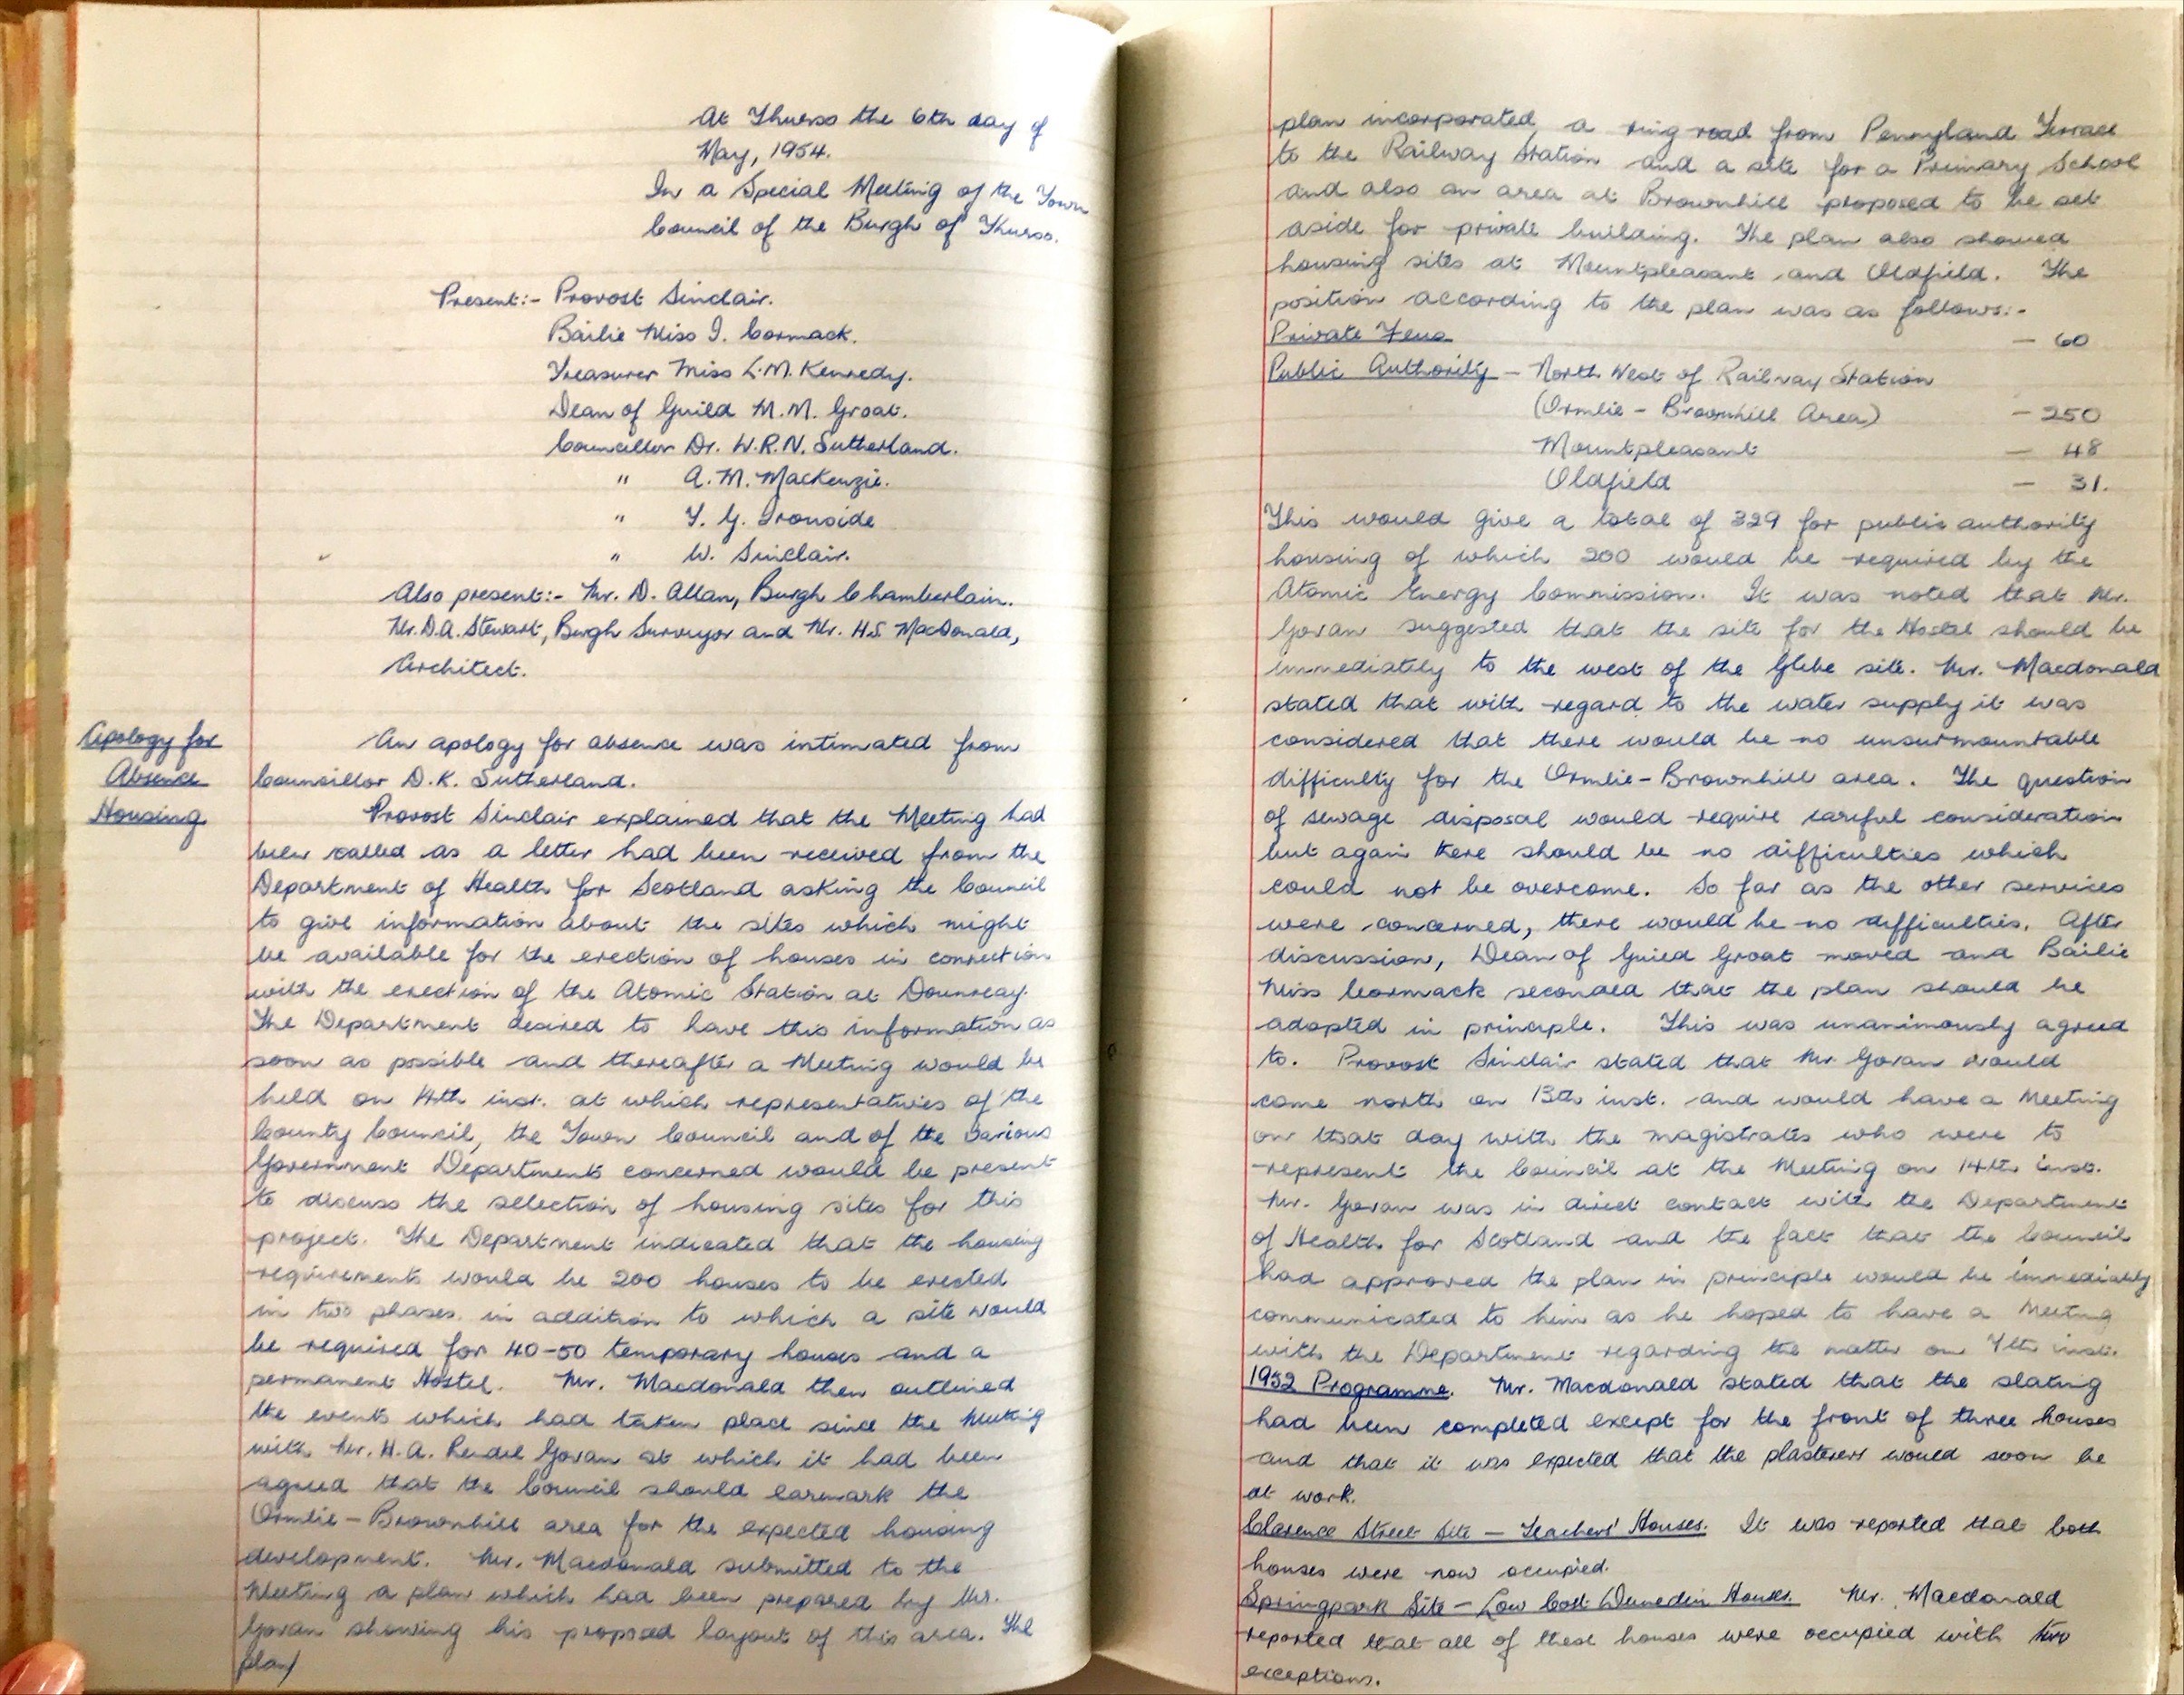 At Thurso the 6th day of
May, 1954.
In a Special Meeting of the Town
Council of the Burgh of Thurso.
Present:- Provost Sinclair.
Bailie Miss I. Cormack.
Treasurer Miss L.M. Kennedy.
Dean of Guild M.M. Groat.
Councillor Dr. W.R.N. Sutherland.
" A. M. MacKenzie.
" T. G. Ironside
" W. Sinclair.
Also present:- Mr. D. Allan, Burgh Chamberlain.
Mr. D.A. Stewart, Burgh Surveyor and Mr. H.S. MacDonald,
Architect.
Apology for
Absence
An apology for absence was intimated from
Councillor D.K. Sutherland.
Housing
Provost Sinclair explained that the Meeting had
been called as a letter had been received from the
Department of Health for Scotland asking the Council
to give information about the sites which might
be available for the erection of houses in connection
with the erection of the Atomic Station at Dounreay.
The Department desired to have this information as
soon as possible and thereafter a Meeting would be
held on 14th inst. at which representatives of the
County Council, the Town Council and of the various
Government Departments concerned would be present
to discuss the selection of housing sites for this
project. The Department indicated that the housing
requirements would be 200 houses to be erected
in two phases in addition to which a site would
be required for 40-50 temporary houses and a
permanent Hostel. Mr. Macdonald then outlined
the events which had taken place since the Meeting
with Mr. H.A. Rendel Govan at which it had been
agreed that the Council should earmark the
Ormlie - Brownhill area for the expected housing
development. Mr. Macdonald submitted to the
Meeting a plan which had been prepared by Mr.
Govan showing his proposed layout of this area. The
plan/
plan incorporated a ring road from Pennyland Terrace
to the Railway Station and a site for a Primary School
and also an area at Brownhill proposed to be set
aside for private building. The plan also showed
housing sites at Mountpleasant and Oldfield. The
position according to the plan was as follows:-
Private Feus - 60
Public Authority - North West of Railway Station
(Ormlie - Brownhill Area) - 250
Mountpleasant - 48
Oldfield - 31.
This would give a total of 329 for public authority
housing of which 200 would be required by the
Atomic Energy Commission. It was noted that Mr.
Govan suggested that the site for the Hostel should be
immediately to the west of the Glebe site. Mr. Macdonald
stated that with regard to the water supply it was
considered that there would be no unsurmountable
difficulty for the Ormlie-Brownhill area. The question
of sewage disposal would require careful consideration
but again there should be no difficulties which
could not be overcome. So far as the other services
were concerned, there would be no difficulties. After
discussion, Dean of Guild Groat moved and Bailie
Miss Cormack seconded that the plan should be
adopted in principle. This was unanimously agreed
to. Provost Sinclair stated that Mr. Govan would
come north on 13th inst. and would have a Meeting
on that day with the magistrates who were to
represent the Council at the Meeting on 14th inst.
Mr. Govan was in direct contact with the Department
of Health for Scotland and the fact that the Council
had approved the plan in principle would be immediately
communicated to him as he hoped to have a Meeting
with the Department regarding the matter on 7th inst.
1952 Programme. Mr. Macdonald stated that the slating
had been completed except for the front of three houses
and that it was expected that the plasterers would soon be
at work.
Clarence Street Site - Teachers' Houses. It was reported that both
houses were now occupied.
Springpark Site - Low Cost Dunedin Houses. Mr. Macdonald
reported that all of these houses were occupied with two
exceptions.